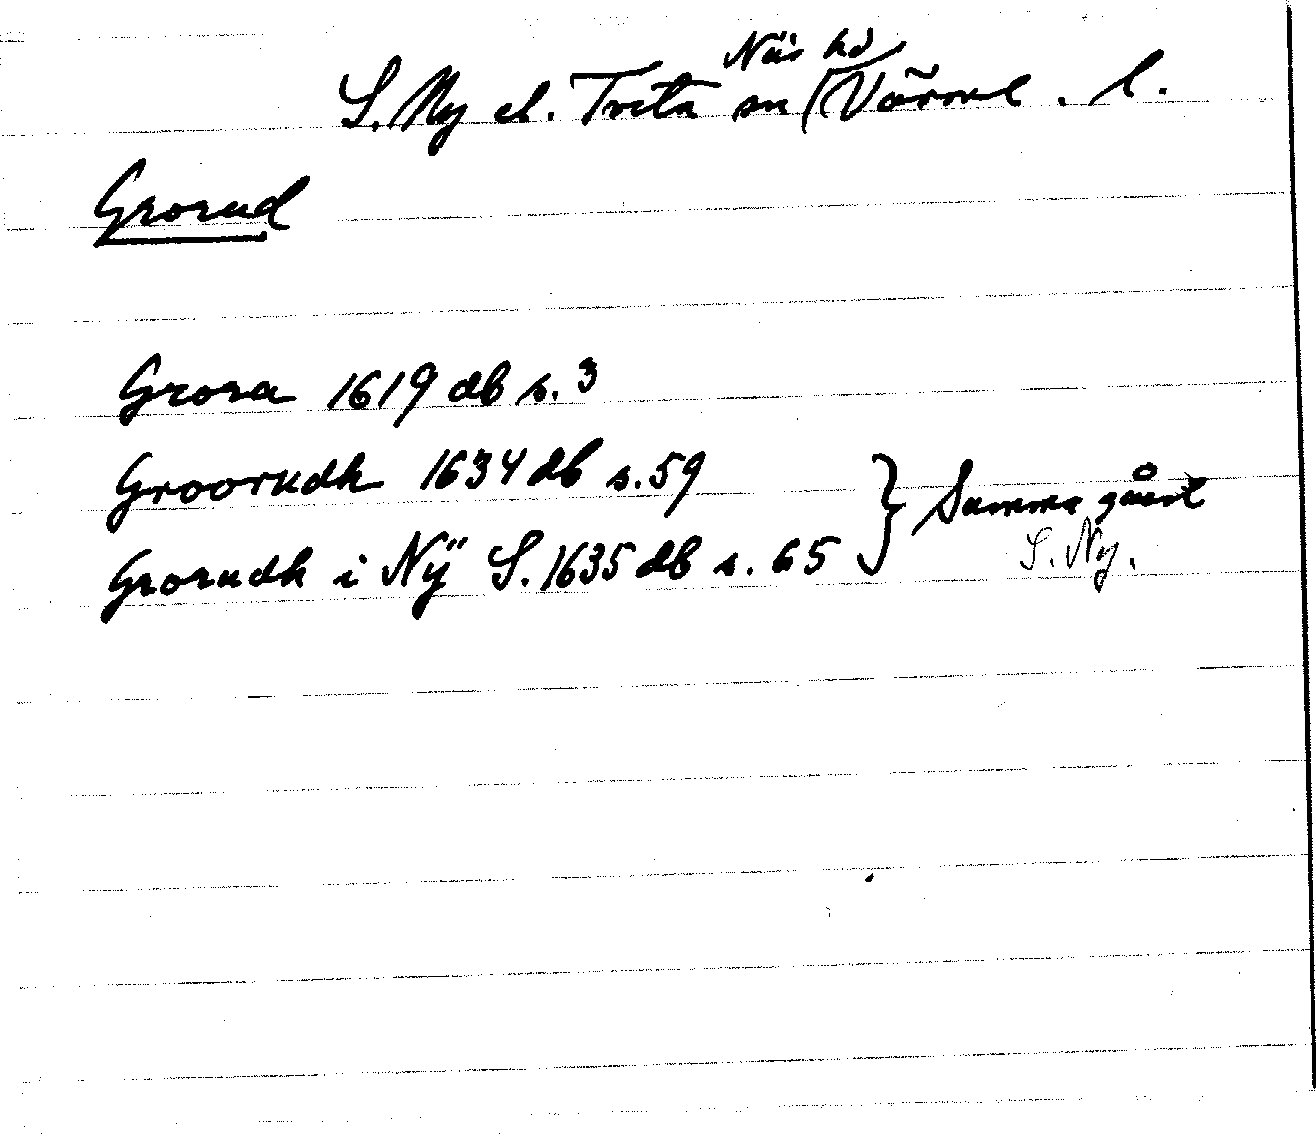 Näs hd
S. Ny el. Tveta sn (Värml. l.
Grorud
Grora 1619 db s. 3
Groorudh 1634 db s. 59
Grorudh i Nÿ S. 1635 db s. 65 } Samma gård
S. Ny.